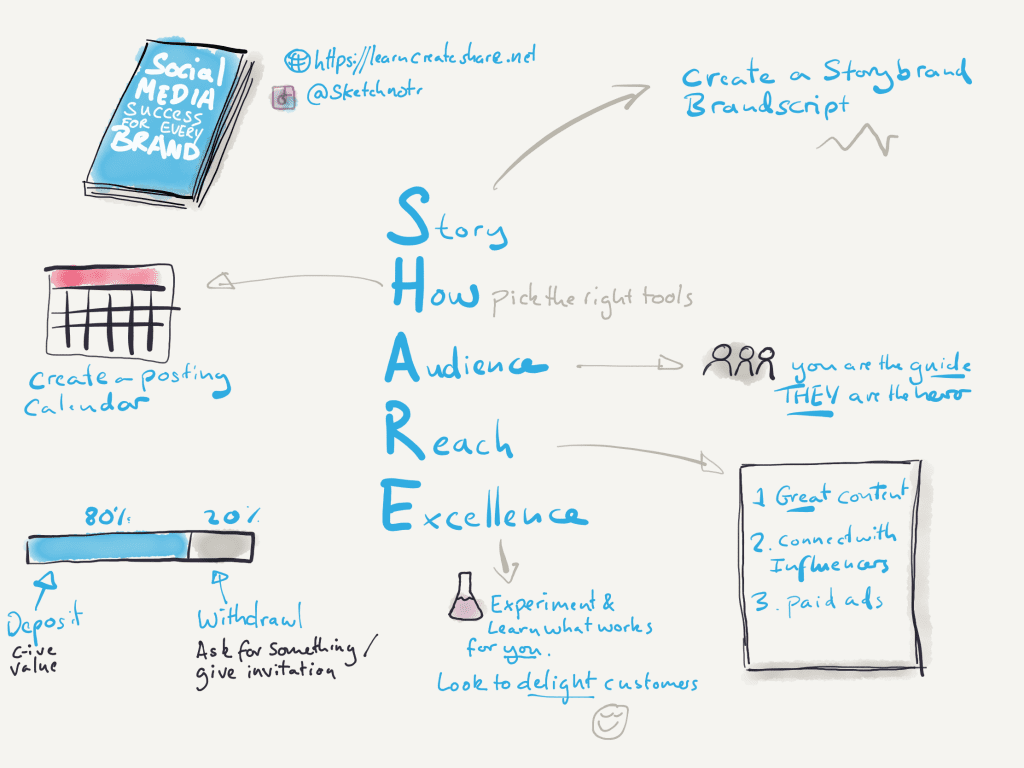 Social
MEDIA
SUCCESS
FOR EVERY
BRAND
https://learncreateshare.net
@Sketchnotr
Create a Storybrand
Brandscript
Story
How pick the right tools
Audience
Reach
Excellence
Create a posting
Calendar
you are the guide
THEY are the hero
1 Great content
2. Connect with
Influencers
3. Paid ads
80% 20%
Deposit
Give
value
Withdrawl
Ask for something /
give invitation
Experiment &
Learn what works
for you.
Look to delight customers